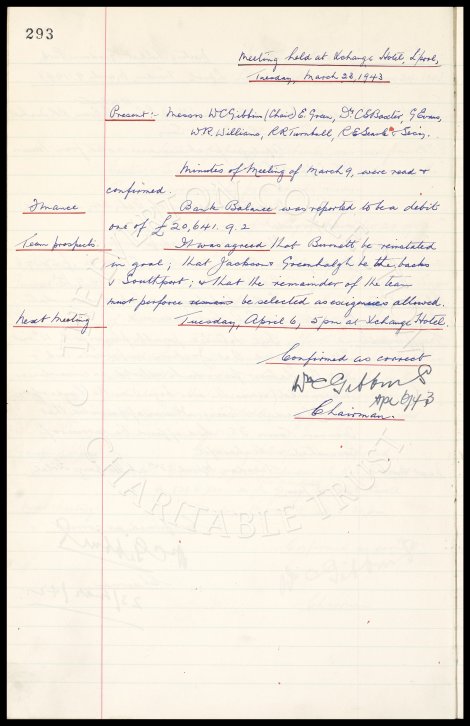 293
Meeting held at Xchange Hotel, Lpool,
Tuesday, March 23, 1943
Present:- Messrs WC Gibbins (Chair) E. Green, Dr C S Baxter, G Evans,
W R. Williams, R R Turnbull, R E Searle & Secy.
Minutes of Meeting of March 9, were read &
confirmed.
Finance Bank Balance was reported to be a debit
one of £20,641. 9. 2
Team prospects It was agreed that Burnett be reinstated
in goal; that Jackson & Greenhalgh be the backs
v Southport; & that the remainder of the team
must perforce be selected as exigencies allowed.
Next Meeting Tuesday, April 6, 5pm at Xchange Hotel.
Confirmed as correct
WC Gibbins
Apl 6/43
Chairman.
CHARITABLE TRUST